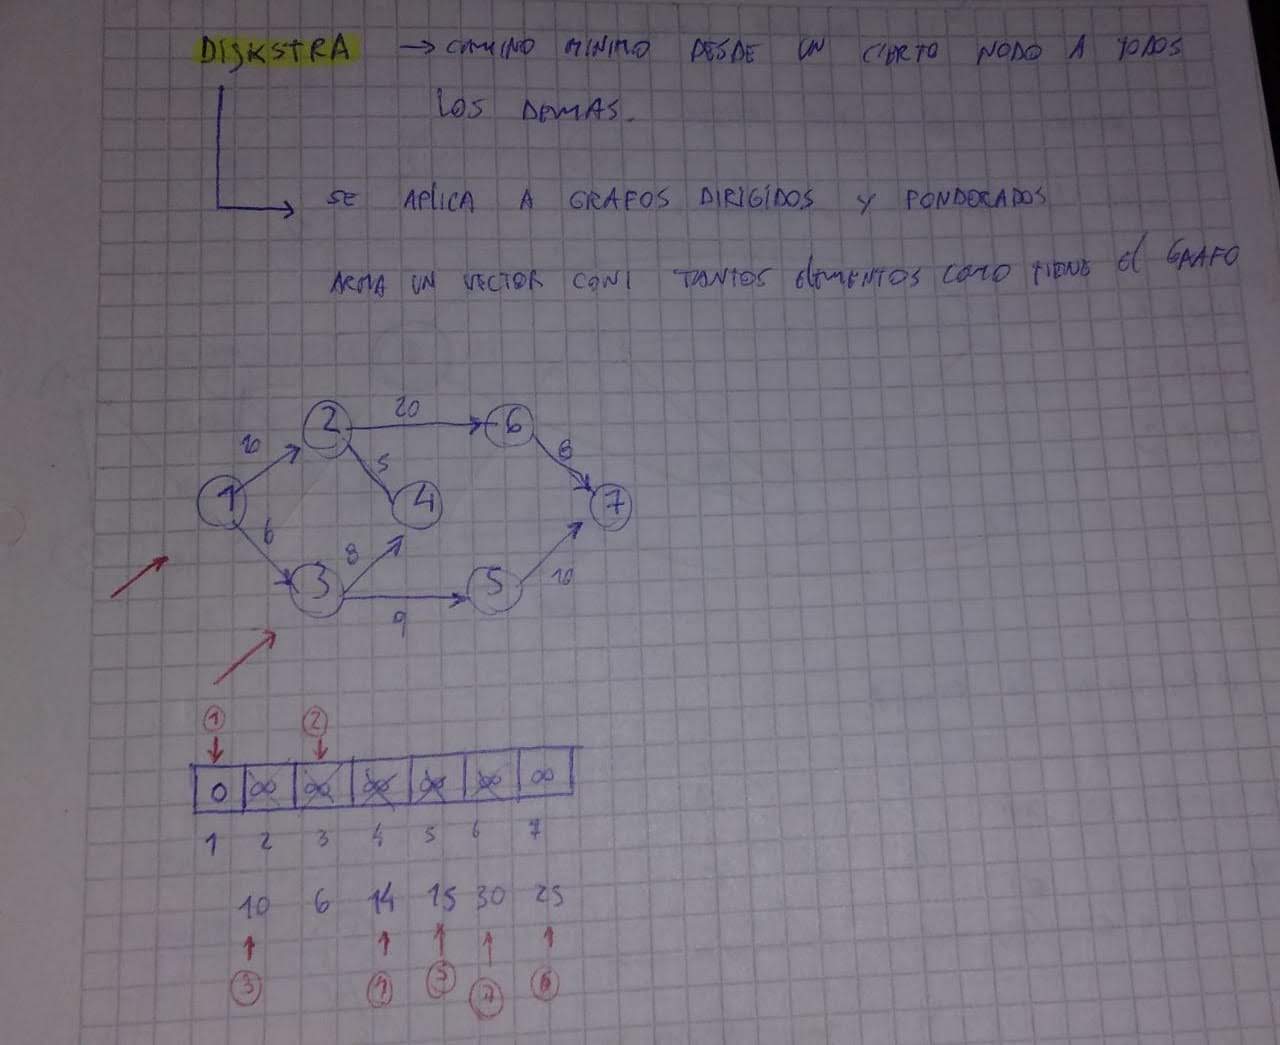 DIJKSTRA → CAMINO MINIMO DESDE UN CIERTO NODO A TODOS
LOS DEMAS.
SE APLICA A GRAFOS DIRIGIDOS Y PONDERADOS
ARMA UN VECTOR CON TANTOS ELEMENTOS COMO TIENE EL GRAFO
20
2 6
10 5 8
1 4 7
6 8
3 5 10
9
1 2
0 ∞ ∞ ∞ ∞ ∞ ∞
1 2 3 4 5 6 7
10 6 14 15 30 25
3 4 5 7 6